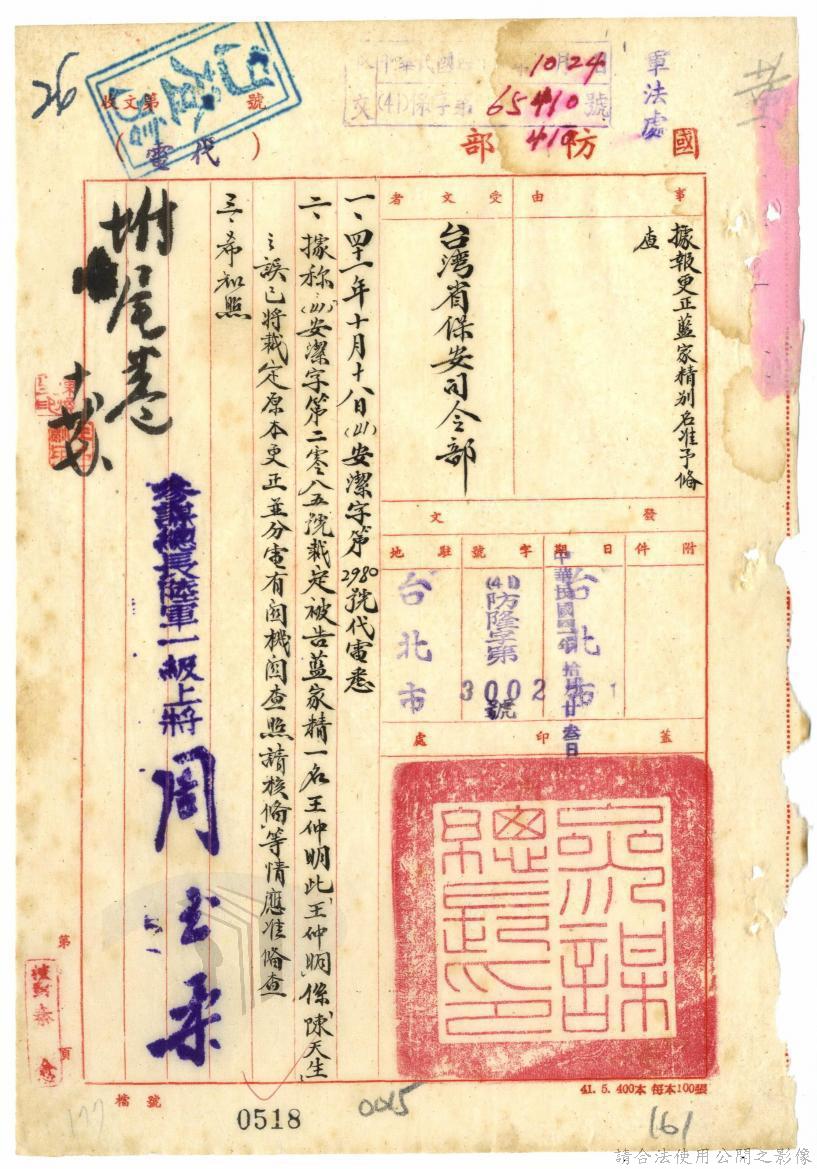 軍法處
中華民國 10月24日
收文 (41)保字第65410號
410
國防部
(代電)
收文第 號
事由
據報更正藍家精別名准予備
查
受文者
台湾省保安司令部
發文
附件
日期
中華民國四一年拾月廿叁日
字號
(41)防隆字第
3002號
駐地
台北市
台北市
蓋印處
參謀總長之印
一、四十一年十月十八日(41)安潔字第2980號代電悉
二、據称:(41)安潔字第二零八五號裁定被告藍家精一名王仲明此「王仲明」係「陳天生」
之誤已將裁定原本更正並分電有関機関查照請核備等情應准備查
三、希知照
參謀總長陸軍一級上將
周至柔
附尾卷
第 頁
檔號
0518
0015
161
177
41. 5. 400本 每本100張
請合法使用公開之影像